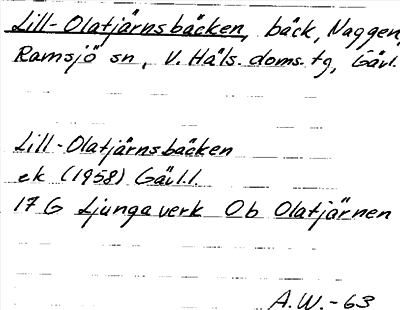 Lill-Olatjärnsbäcken, bäck, Naggen,
Ramsjö sn, V. Häls. doms. tg, Gävl.
Lill-Olatjärnsbäcken
ek (1958) Gävl.l.
17 G Ljungaverk Ob Olatjärnen
A.W.-63